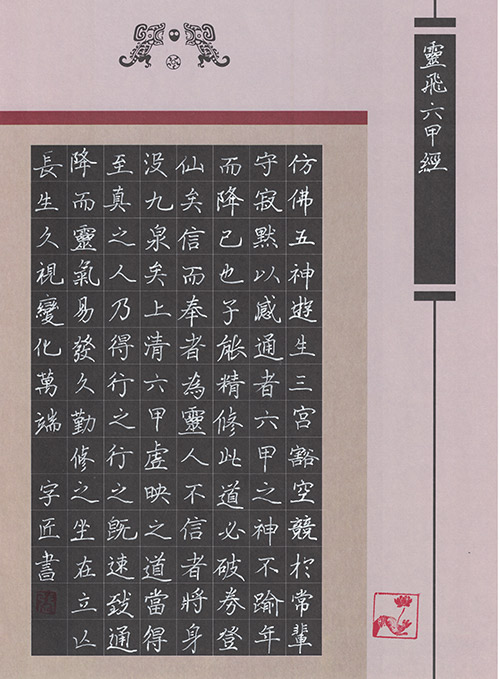 靈飛六甲經
仿佛五神遊生三宮豁空競於常輩
守寂默以感通者六甲之神不踰年
而降已也子能精修此道必破券登
仙矣信而奉者為靈人不信者將身
没九泉矣上清六甲虛映之道當得
至真之人乃得行之行之既速致通
降而靈氣易發久勤修之坐在立亡
長生久視變化萬端 字匠書